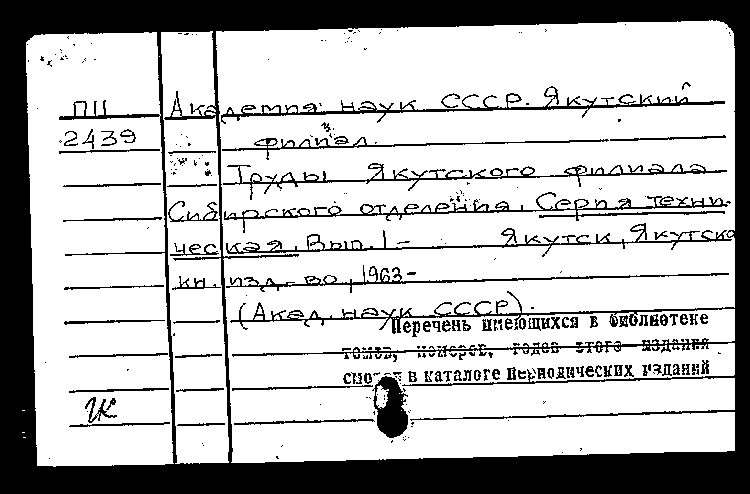 ПII Академия наук СССР. Якутский
2439 филиал.
Труды Якутского филиала
Сибирского отделения. Серия техни-
ческая. Вып. 1- Якутск, Якутско
кн. изд-во, 1963-
(Акад. наук СССР).
Перечень имеющихся в библиотеке
томов, номеров, годов этого издания
смотри в каталоге периодических изданий